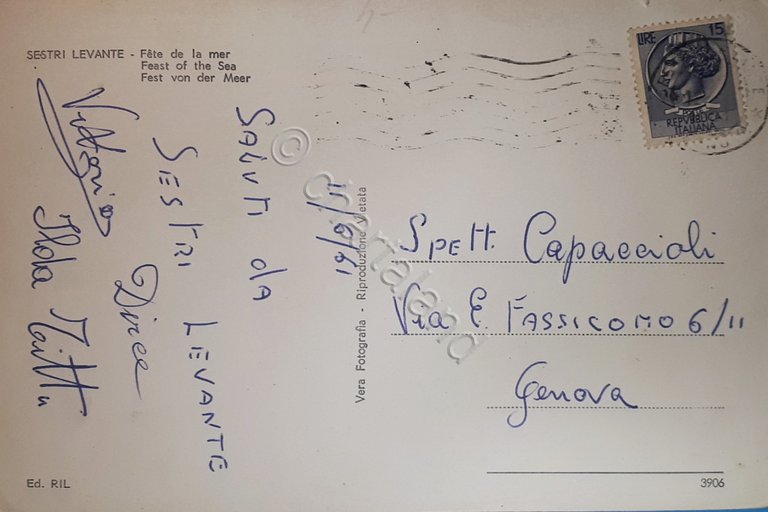 SESTRI LEVANTE - Fête de la mer
Feast of the Sea
Fest von der Meer
LIRE 15
REPVBBLICA
ITALIANA
11/6/61
SALUTI DA
SESTRI LEVANTE
Dirce
Vittorio
Ilda
Vera Fotografia - Riproduzione Vietata
Spett. Capaccioli
Via E. FASSICOMO 6/11
Genova
Ed. RIL
3906
© cartaland